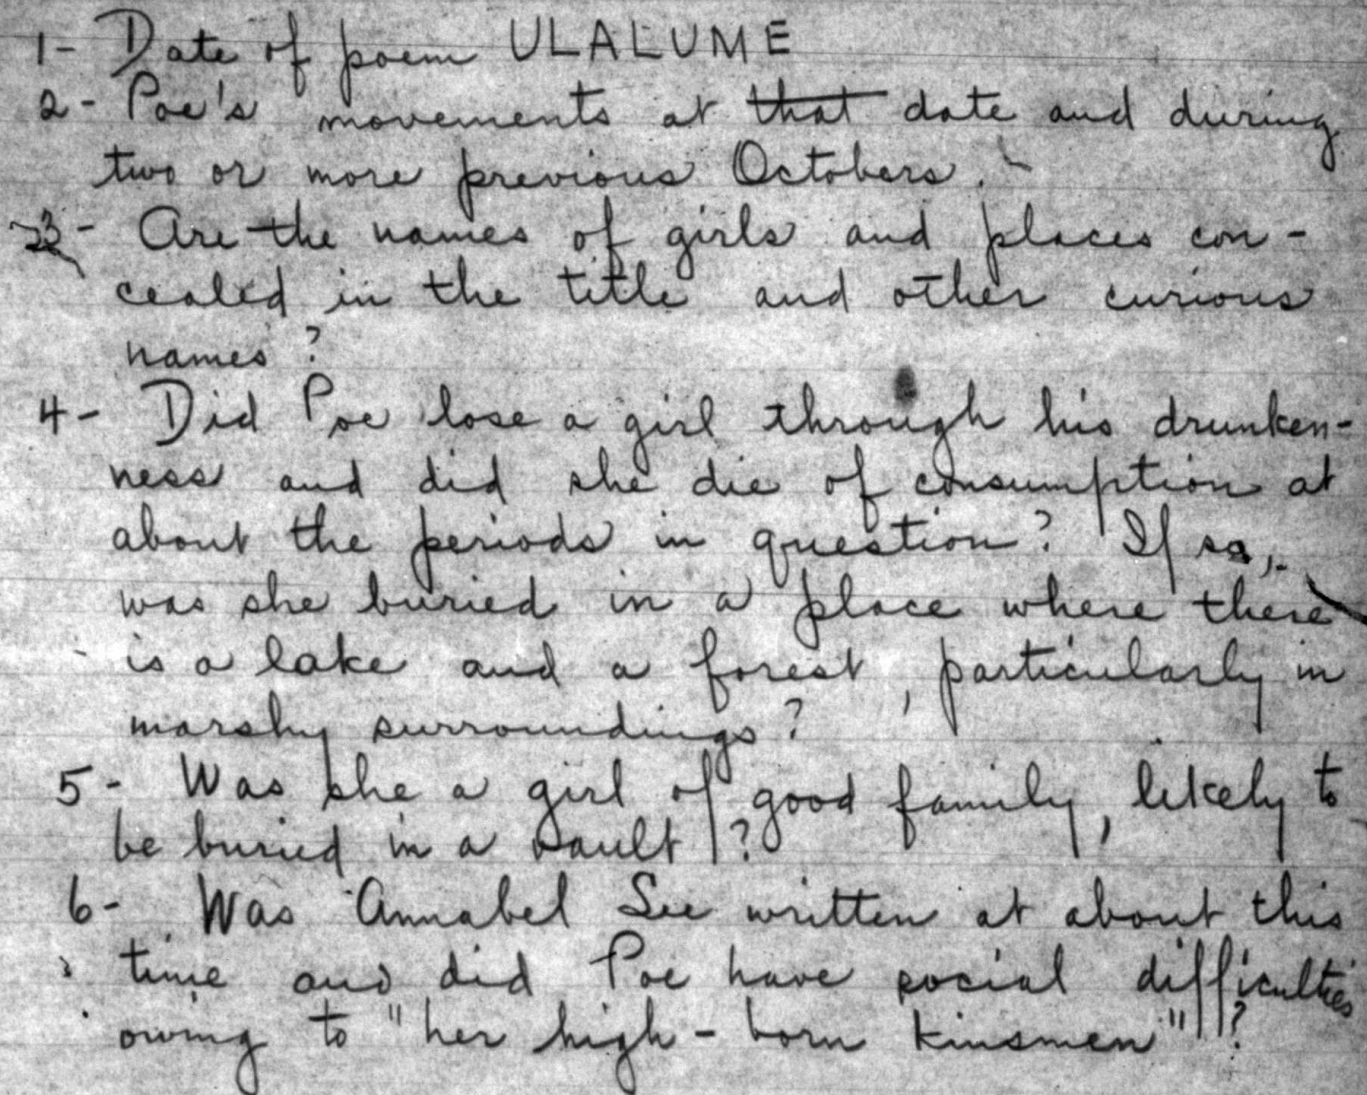 1- Date of poem ULALUME
2- Poe's movements at that date and during
two or more previous Octobers.
3- Are the names of girls and places con-
cealed in the title and other curious
names?
4- Did Poe lose a girl through his drunken-
ness and did she die of consumption at
about the periods in question? If so,
was she buried in a place where there
is a lake and a forest, particularly in
marshy surroundings?
5- Was she a girl of good family, likely to
be buried in a vault?
6- Was Annabel Lee written at about this
time and did Poe have social difficulties
owing to "her high-born kinsmen"?